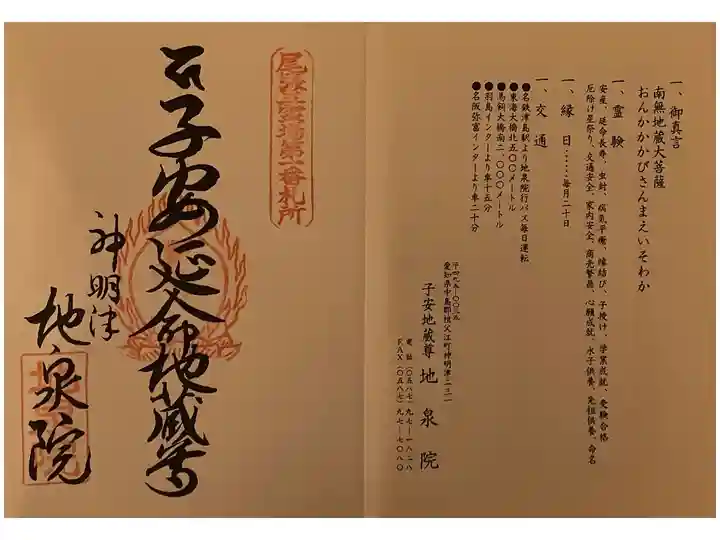 一、御真言
南無地蔵大菩薩
おんかかかびさんまえいそわか
一、霊験
安産、延命長寿、虫封、病気平癒、縁結び、子授け、学業成就、受験合格
厄除け星祭り、交通安全、家内安全、商売繁昌、心願成就、水子供養、先祖供養、命名
一、縁日……毎月二十日
一、交通
●名鉄津島駅より地泉院行バス毎日運転
●東海大橋北五〇〇メートル
●馬飼大橋南二、〇〇〇メートル
●羽島インターより車十五分
●名阪弥富インターより車二十分
〒四九五―〇〇三五
愛知県中島郡祖父江町神明津二三一
子安地蔵尊 地泉院
電話(〇五八七)九七―一八二八
FAX(〇五八七)九七―七〇八〇
霊場第一番札所
子安延命地蔵尊
神明津
地泉院